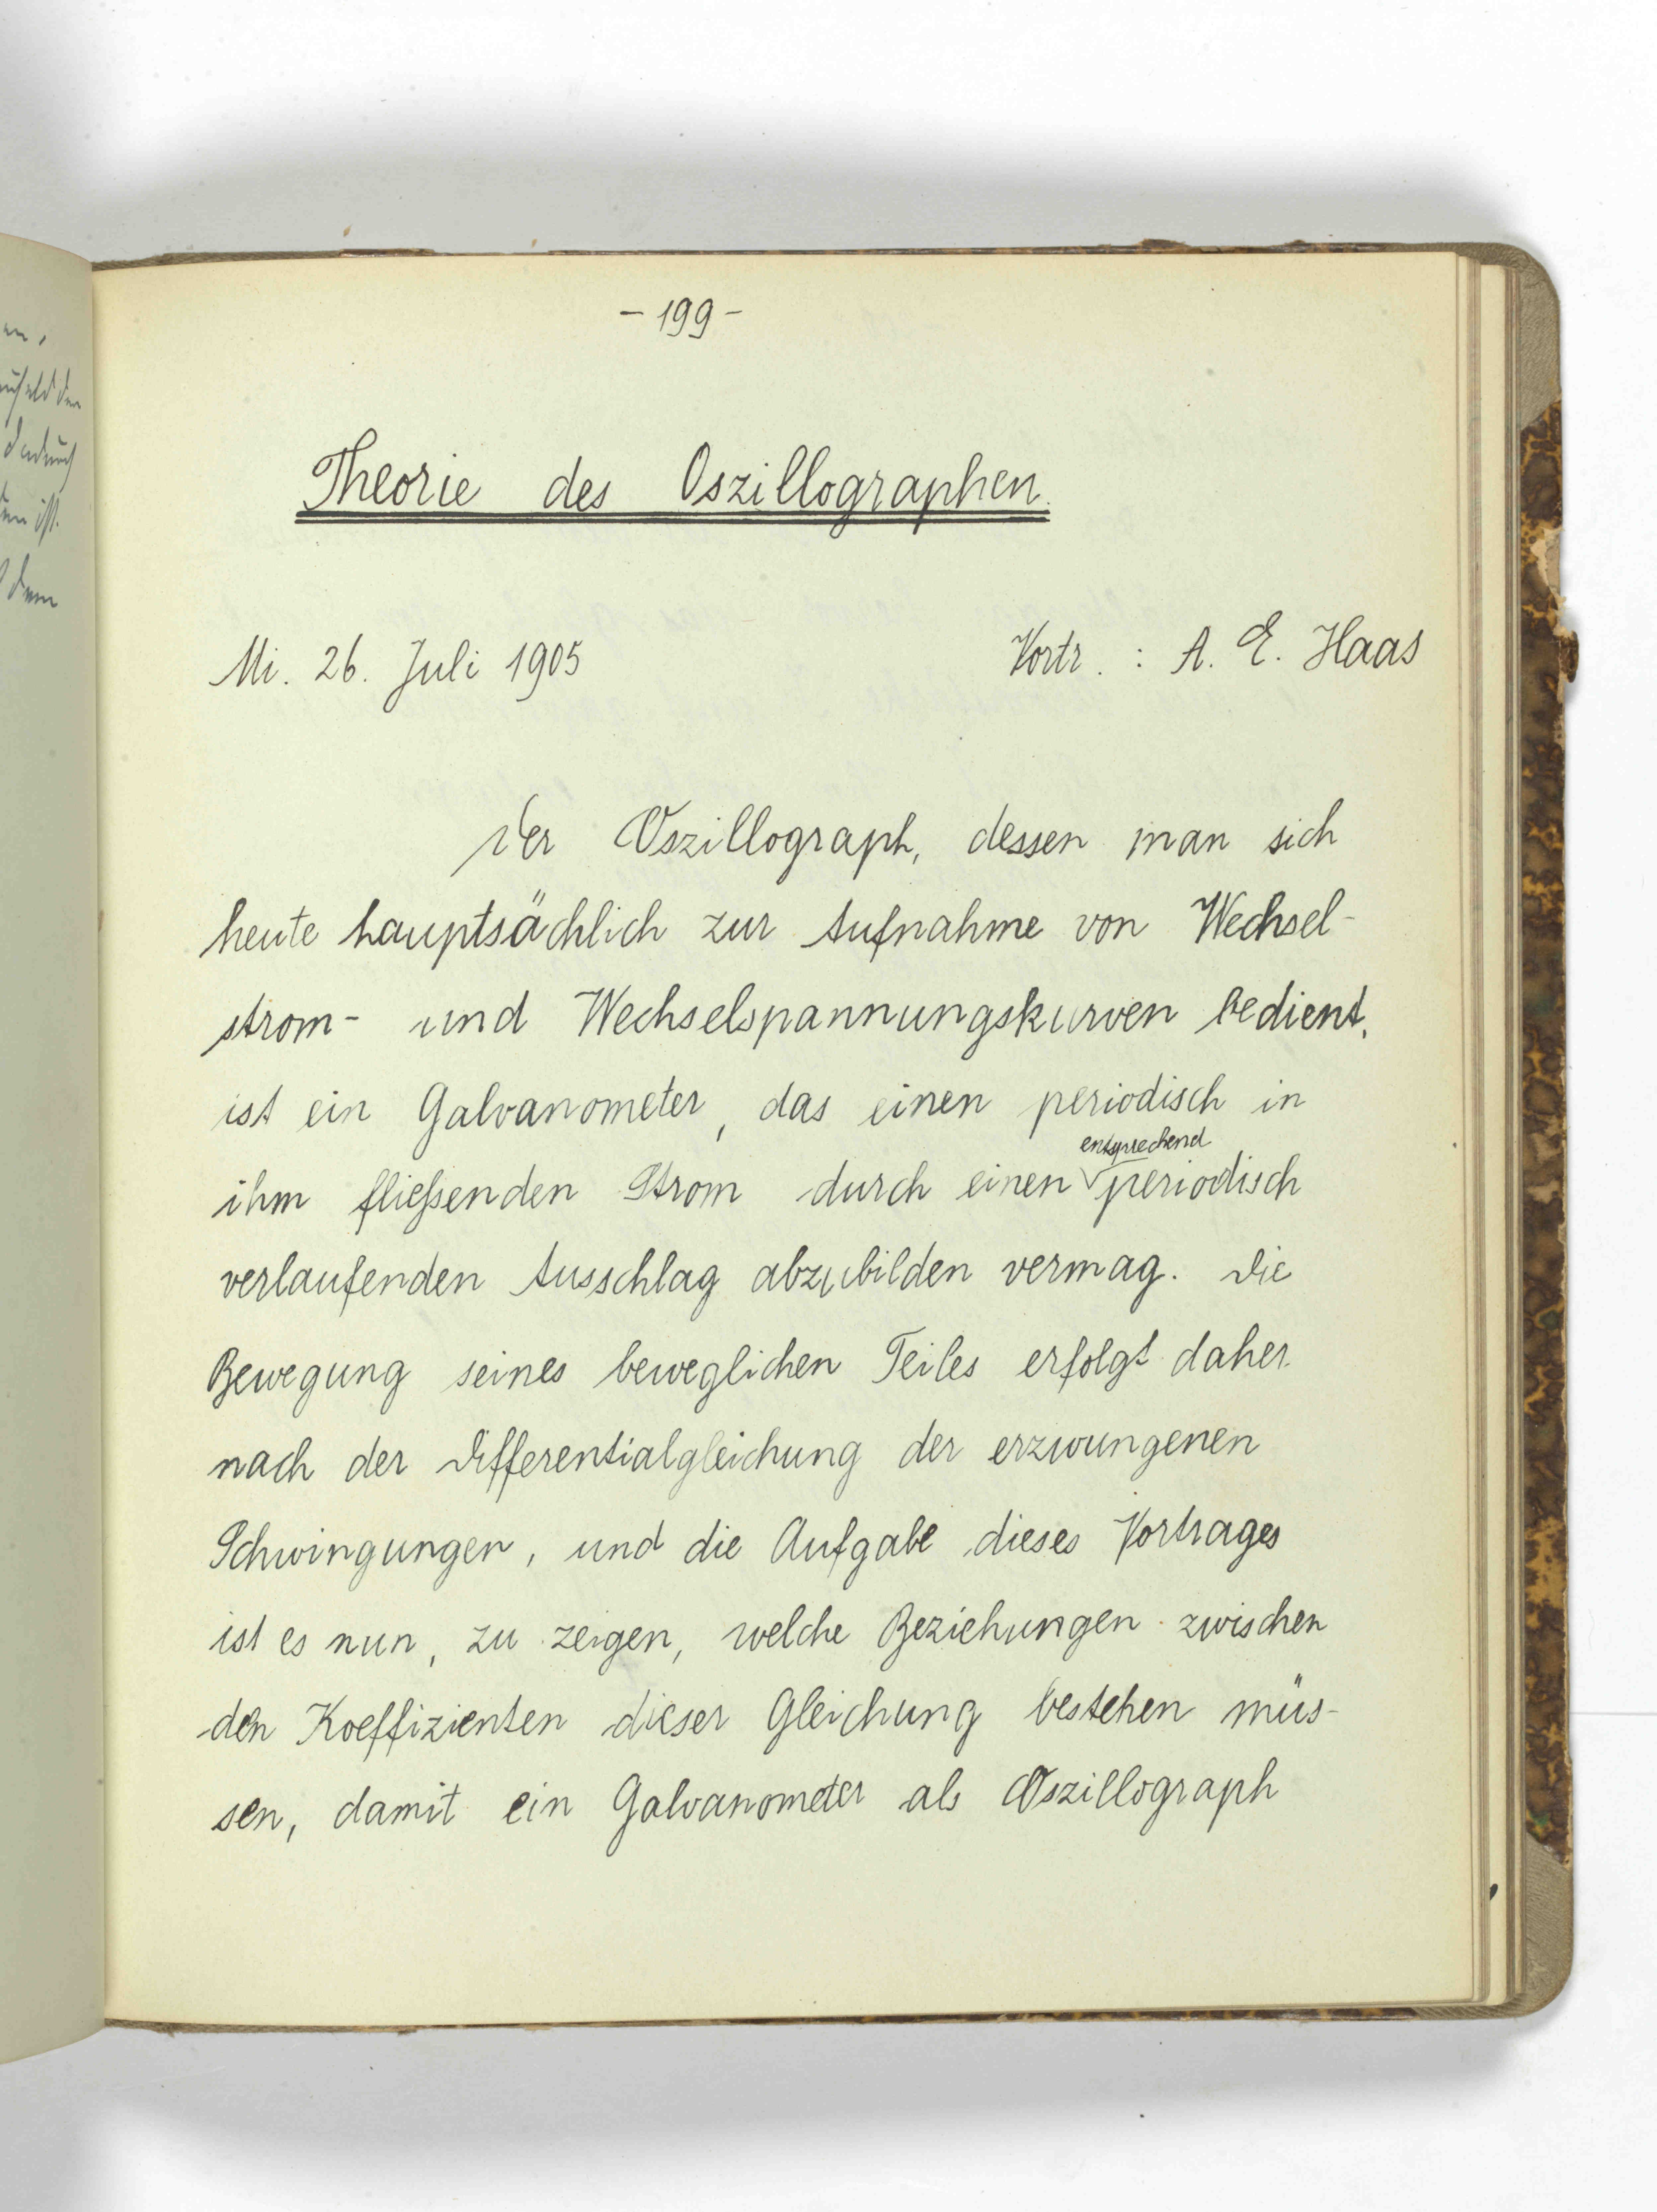 - 199 -
Theorie des Oszillographen.
Mi. 26. Juli 1905
Vortr. : A. E. Haas
Der Oszillograph, dessen man sich
heute hauptsächlich zur Aufnahme von Wechsel-
strom- und Wechselspannungskurven bedient,
ist ein Galvanometer, das einen periodisch in
entsprechend
ihm fließenden Strom durch einen periodisch
verlaufenden Ausschlag abzubilden vermag. Die
Bewegung seines beweglichen Teiles erfolgt daher
nach der Differentialgleichung der erzwungenen
Schwingungen, und die Aufgabe dieses Vortrages
ist es nun, zu zeigen, welche Beziehungen zwischen
den Koeffizienten dieser Gleichung bestehen müs-
sen, damit ein Galvanometer als Oszillograph